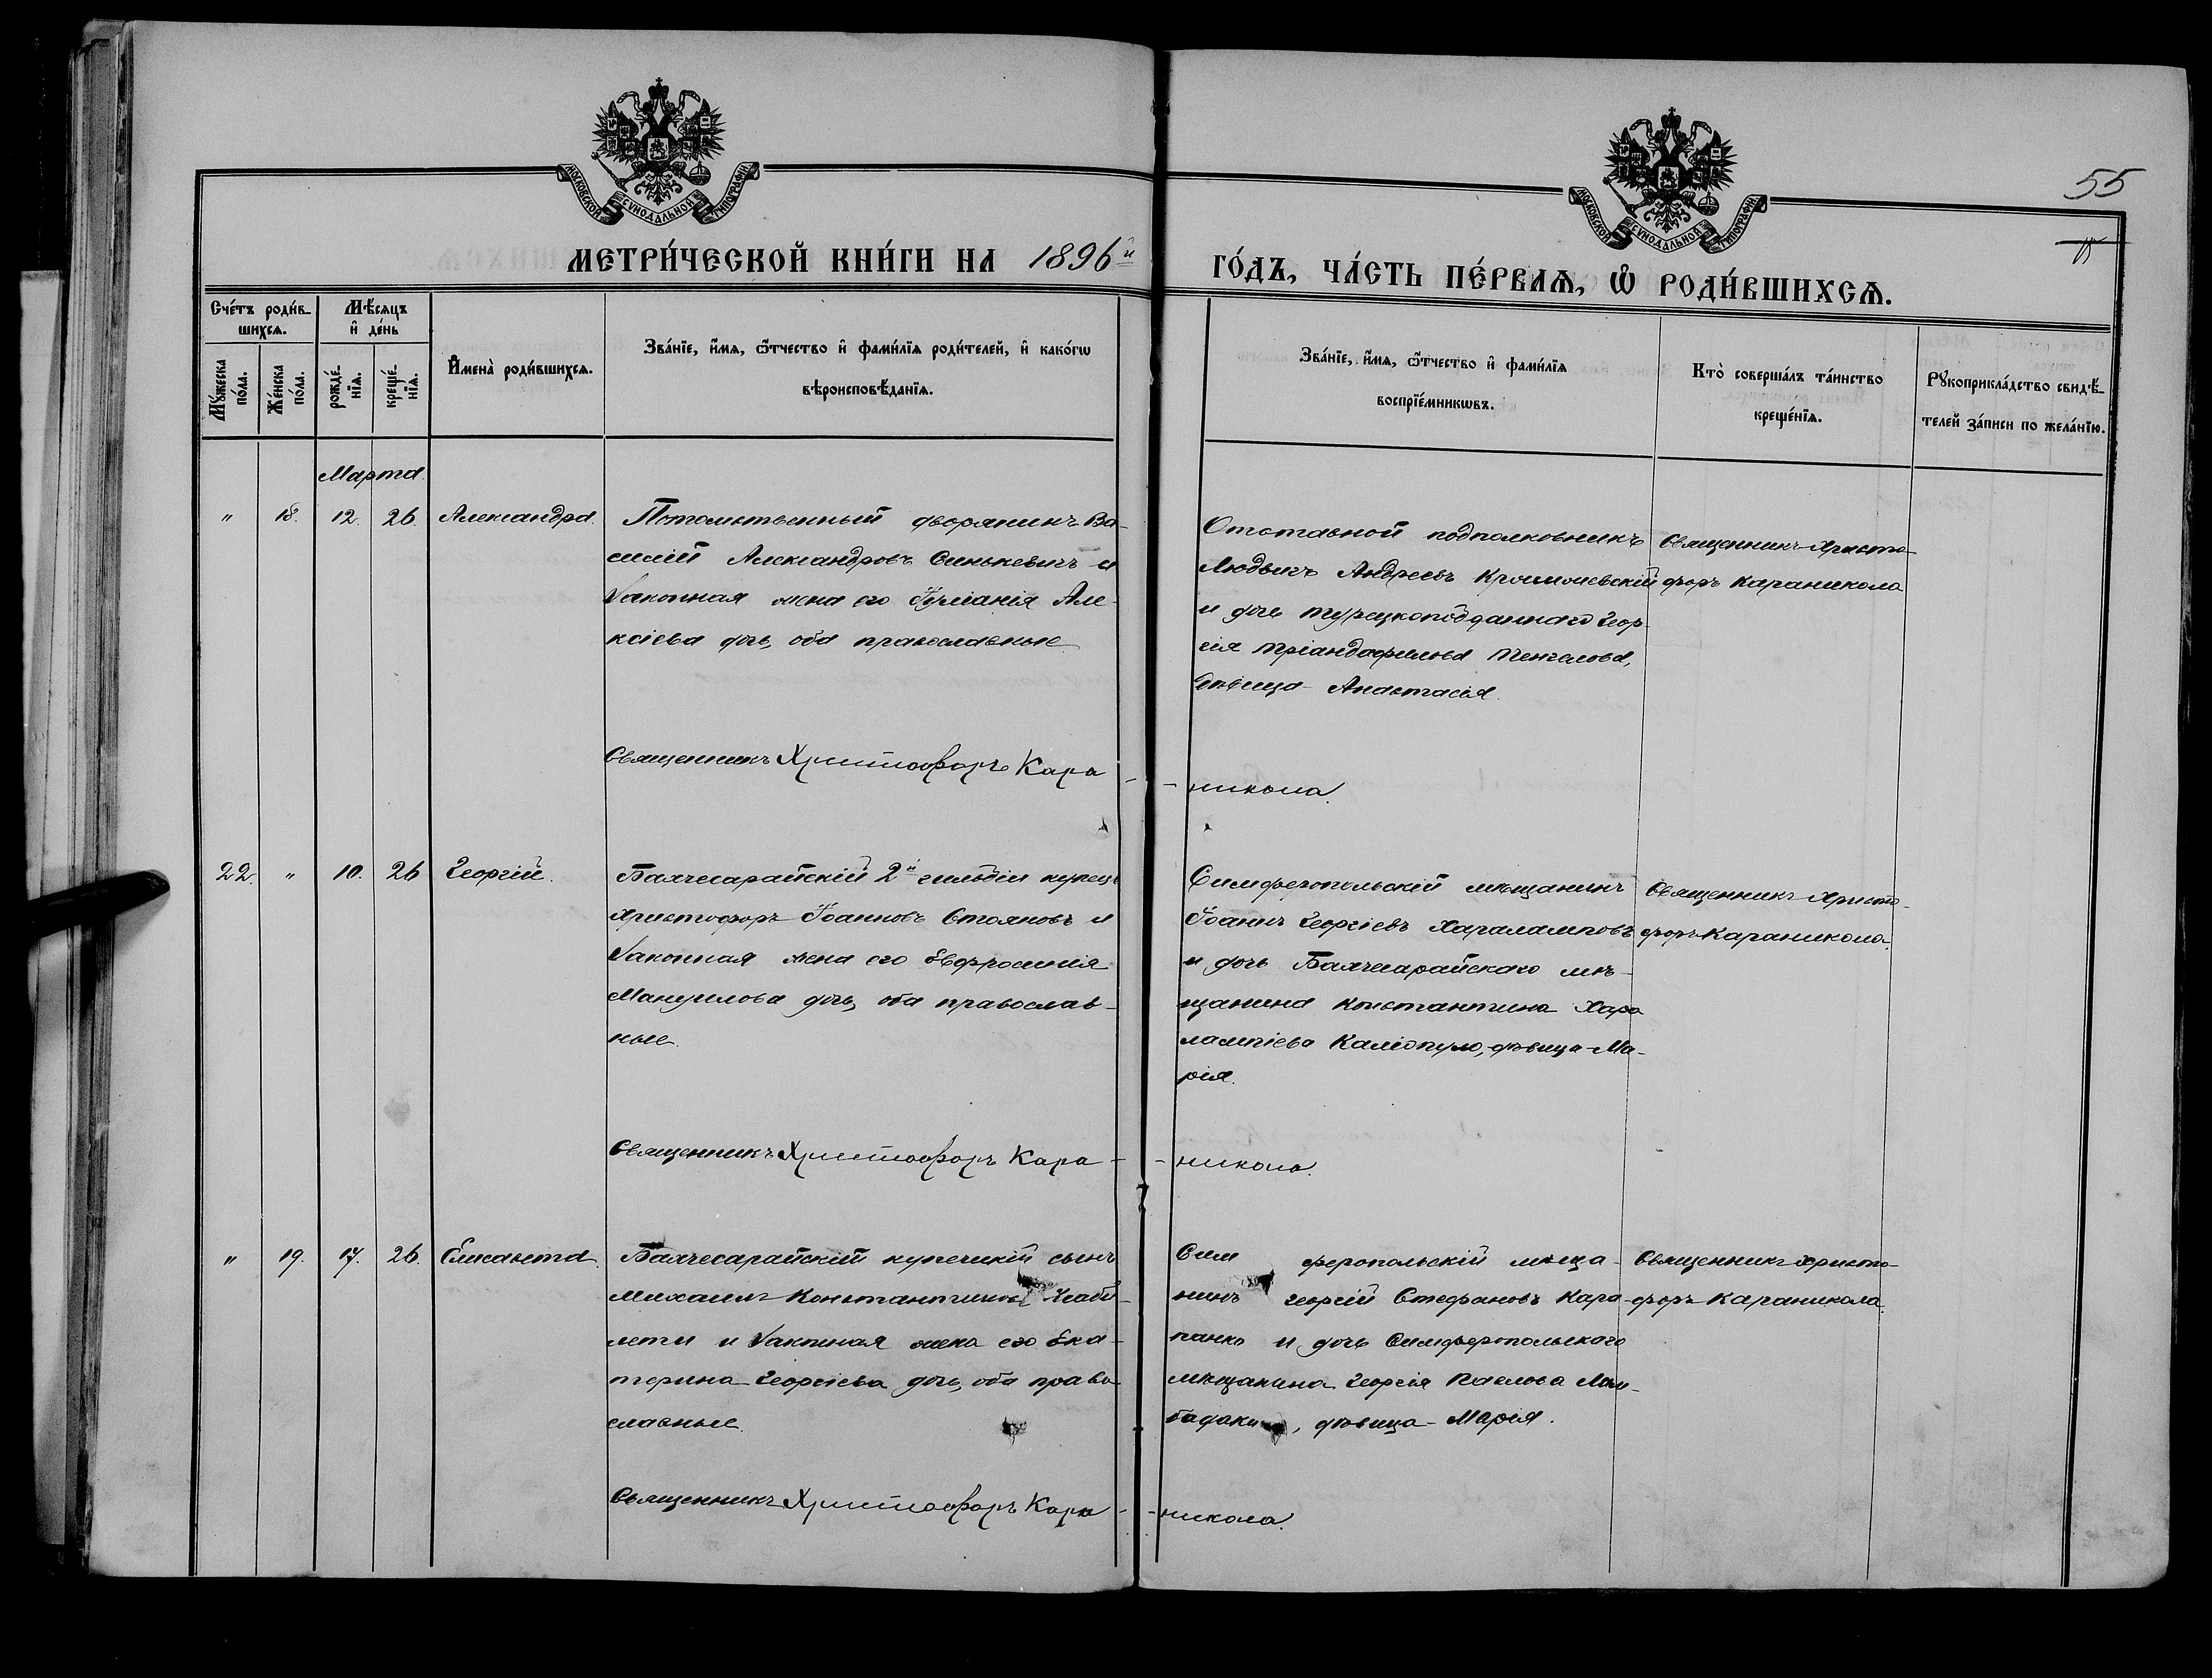 МОСКОВСКОЙ СѴНОДАЛЬНОЙ ТИПОГРАФІИ
МОСКОВСКОЙ СѴНОДАЛЬНОЙ ТИПОГРАФІИ
55
МЕТРИ́ЧЕСКОЙ КНИ́ГИ НА 1896й
ГО́ДЪ, ЧА́СТЬ ПЕ́РВАѦ, Ѡ҆ РОДИ́ВШИХСѦ.
Сче́тъ роди́в-
шихсѧ.
Мꙋ́жеска по́ла.
Же́нска по́ла.
Мѣ́сяцъ
и҆ де́нь
рожде́-
нїѧ.
креще́-
нїѧ.
И҆мена̀ роди́вшихсѧ.
Зва́нїе, и҆́мѧ, ѻ҆́тчество и҆ фами́лїѧ роди́телей, и҆ како́гѡ
вѣроисповѣ́данїѧ.
Зва́нїе, и҆́мѧ, ѻ҆́тчество и҆ фами́лїѧ
воспрїе́мникѡвъ.
Кто̀ соверша́лъ та́инство
креще́нїѧ.
Рꙋкоприкла́дство свидѣ́-
телей за́писи по жела́нїю.
Марта.
" 18. 12. 26. Александра.
Потомственный дворянинъ Ва-
силій Александровъ Синькевичъ и
законная жена его Іуліанія Але-
ксіева дочь, оба православные
Отставной подполковникъ
Людвигъ Андреевъ
и дочь турецкоподданнаго Геор-
гія Тріандафилова
дѣвица Анастасія.
Священникъ Христо-
форъ Караникола
Священникъ Христофоръ Кара-
-никола.
22. " 10. 26 Георгій.
Бахчесарайскій 2й гильдіи купецъ
Христофоръ Іоанновъ Стояновъ и
законная жена его Евфросинія
Мануилова дочь, оба православ-
ные.
Симферопольскій мѣщанинъ
Іоаннъ Георгіевъ Хараламповъ
и дочь Бахчесарайскаго мѣ-
щанина Константина Хара
лампіева Каліопуло, дѣвица Ма-
рія.
Священникъ Христо-
форъ Караникола.
Священникъ Христофоръ Кара-
-никола.
" 19. 17. 26. Елисавета.
Бахчесарайскій купеческій сынъ
Михаилъ Константиновъ
и законная жена его Ека-
терина Георгіева дочь, оба право-
славные.
Сим феропольскій мѣща-
нинъ Георгій Стефановъ Кара-
и дочь Симферопольскаго
мѣщанина Георгія Павлова
дѣвица Марія.
Священникъ Христо-
форъ Караникола.
Священникъ Христофоръ Кара-
-никола.